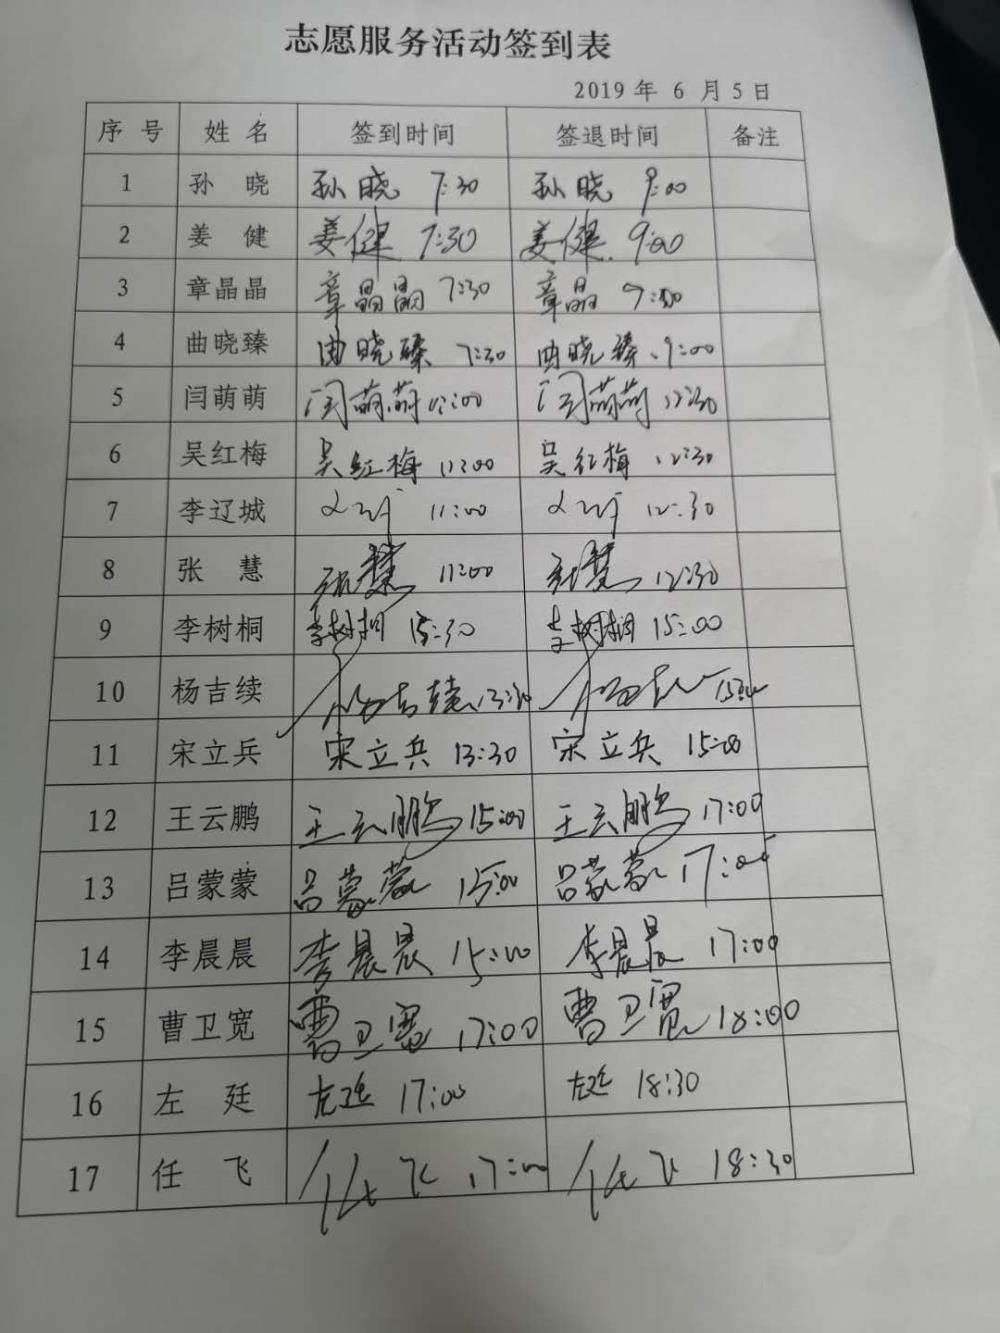 志愿服务活动签到表
2019 年 6 月 5 日
序 号 姓 名 签到时间 签退时间 备注
1 孙 晓 孙晓 7:30 孙晓 9:00
2 姜 健 姜健 7:30 姜健 9:00
3 章晶晶 章晶晶 7:30 章晶 9:00
4 曲晓臻 曲晓臻 7:30 曲晓臻 9:00
5 闫萌萌 闫萌萌 闫萌萌 12:30
6 吴红梅 吴红梅 11:00 吴红梅 12:30
7 李辽城 11:00 12:30
8 张 慧 张慧 11:00 张慧 12:30
9 李树桐 李树桐 15:30 李树桐 15:00
10 杨吉续 杨吉续 13:30 杨吉
11 宋立兵 宋立兵 13:30 宋立兵 15:00
12 王云鹏 王云鹏 15:00 王云鹏 17:00
13 吕蒙蒙 吕蒙蒙 15:00 吕蒙蒙 17:00
14 李晨晨 李晨晨 15:00 李晨晨 17:00
15 曹卫宽 曹卫宽 17:00 曹卫宽 18:00
16 左 廷 左廷 17:00 左廷 18:30
17 任 飞 任飞 17:00 任飞 18:30